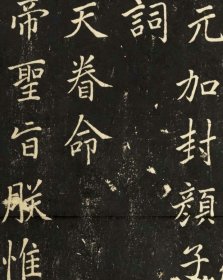 元加封顏子
詞
天眷命
帝聖旨朕惟